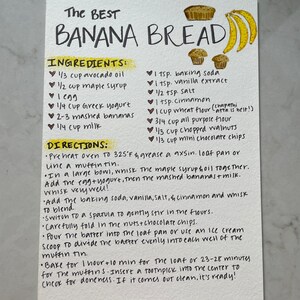 The Best
BANANA BREAD
INGREDIENTS:
1/3 cup avocado oil
1/2 cup maple syrup
1 egg
1/4 cup Greek yogurt
2-3 mashed bananas
1/4 cup milk
1 tsp. baking soda
1 tsp. vanilla extract
1/2 tsp. salt
1 tsp. cinnamon
1 cup wheat flour
3/4 cup all purpose flour
1/3 cup chopped walnuts
1/3 cup mini chocolate chips
DIRECTIONS:
• Preheat oven to 325°F & grease a 9x5in. loaf pan or
line a muffin tin.
• In a large bowl, whisk the maple syrup & oil together.
Add the egg + yogurt, then the mashed bananas + milk.
Whisk very well!
• Add the baking soda, vanilla, salt, & cinnamon and whisk
to blend.
• Switch to a spatula to gently stir in the flours.
• Carefully fold in the nuts + chocolate chips.
• Pour the batter into the loaf pan or use an ice cream
scoop to divide the batter evenly into each well of the
muffin tin.
• Bake for 1 hour + 10 min for the loaf or 23-25 minutes
for the muffins. - Insert a toothpick into the center to
check for doneness. If it comes out clean, it's ready!